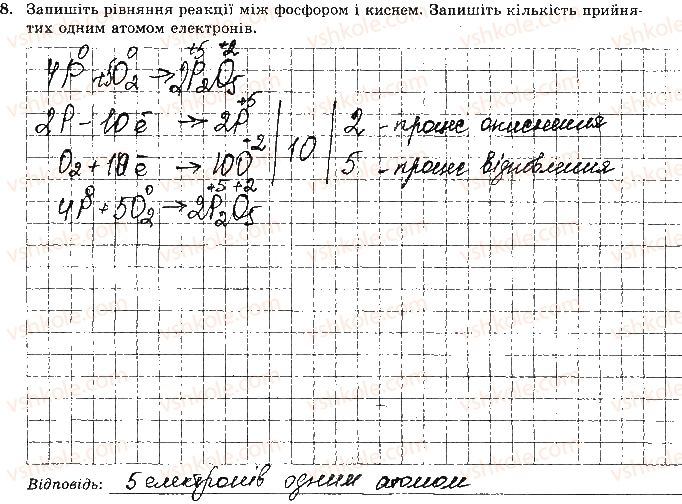 8. Запишіть рівняння реакції між фосфором і киснем. Запишіть кількість прийня-
тих одним атомом електронів.
4P⁰ + 5O₂⁰ → 2P₂⁺⁵O₅⁺²
2P – 10ē → 2P⁺⁵ | 10 | 2 - процес окиснення
O₂ + 10ē → 10O⁺² | 5 - процес відновлення
4P⁰ + 5O₂⁰ → 2P₂⁺⁵O₅⁺²
Відповідь: 5 електронів одним атомом